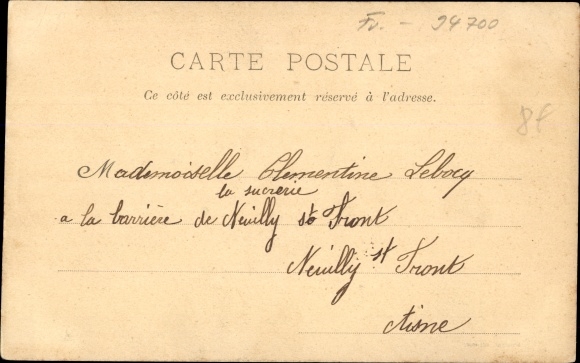 Fr. - 94700
CARTE POSTALE
Ce côté est exclusivement réservé à l'adresse.
8f
Mademoiselle Clementine Lebocq
la sucrerie
a la barrière de Neuilly st Front
Neuilly st Front
Aisne